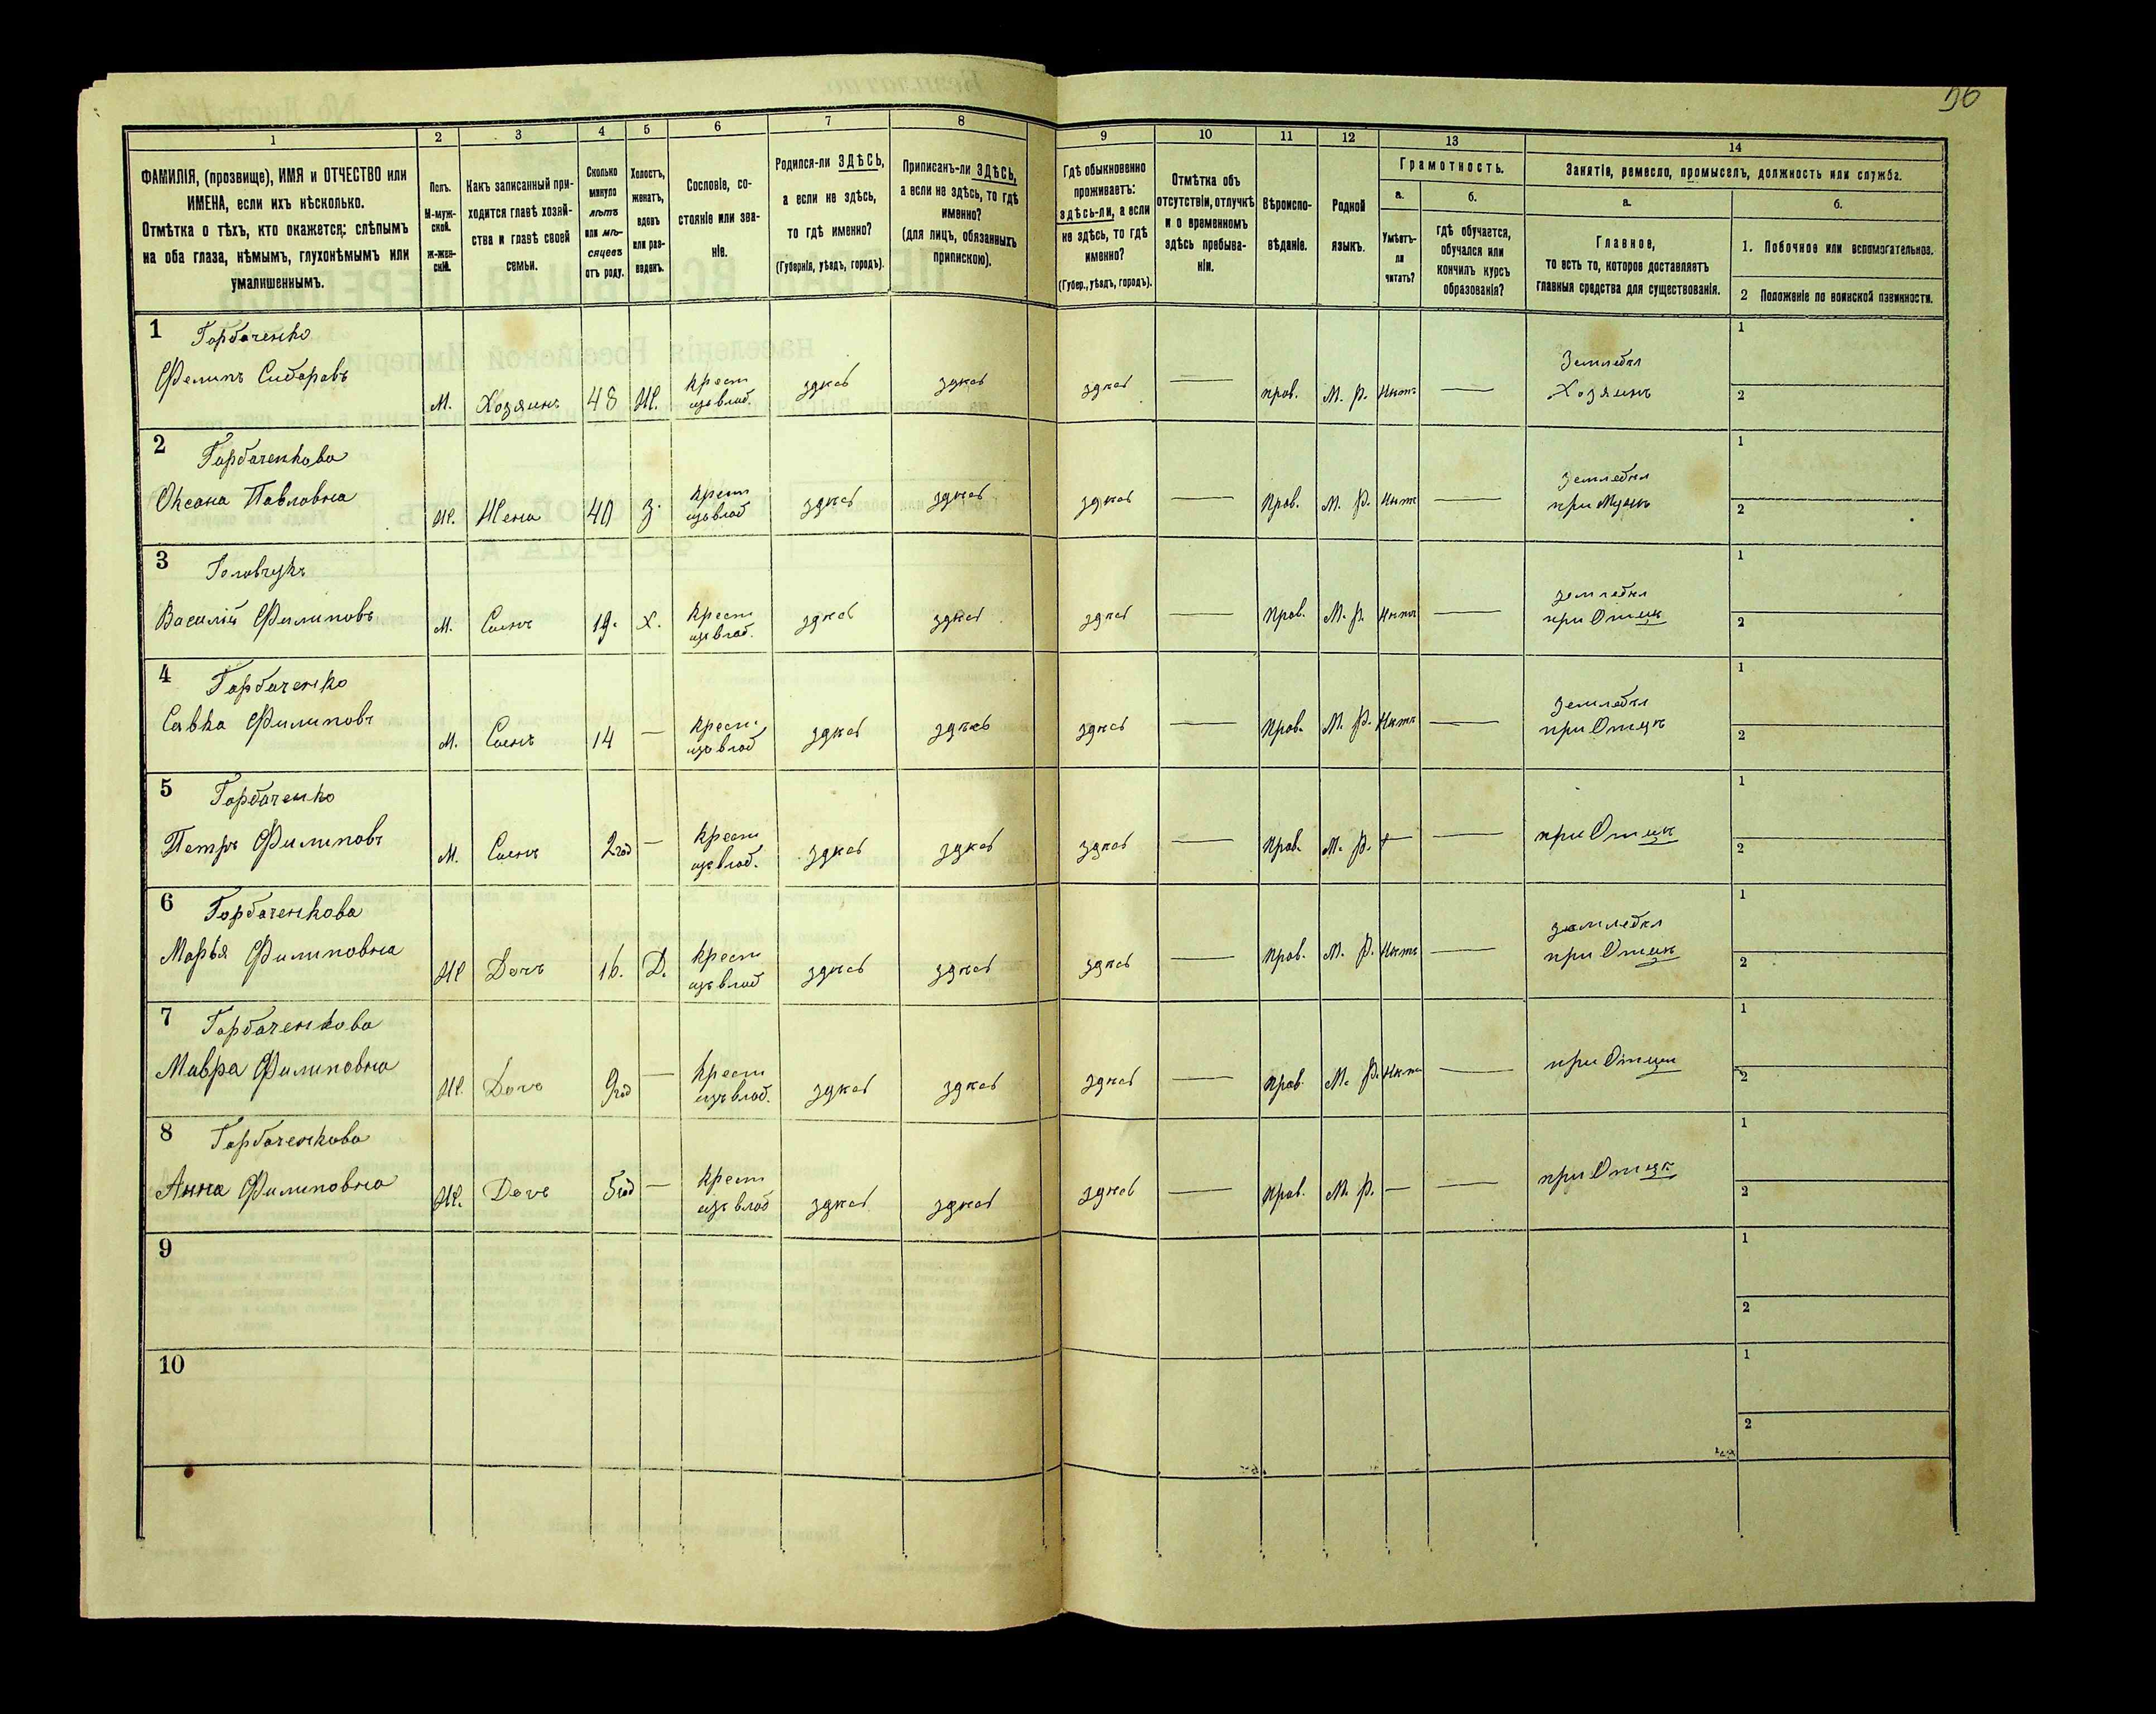 56
1
2
3
4
5
6
7
8
9
10
11
12
13
14
ФАМИЛІЯ, (прозвище), ИМЯ и ОТЧЕСТВО или
ИМЕНА, если ихъ нѣсколько.
Отмѣтка о тѣхъ, кто окажется: слѣпымъ
на оба глаза, нѣмымъ, глухонѣмымъ или
умалишеннымъ.
Полъ.
М-муж-
ской.
ж-жен-
скій.
Какъ записанный при-
ходится главѣ хозяй-
ства и главѣ своей
семьи.
Сколько
минуло
лѣтъ
или мѣ-
сяцевъ
отъ роду.
Холостъ,
женатъ,
вдовъ
или раз-
веденъ.
Сословіе, со-
стояніе или зва-
ніе.
Родился-ли ЗДѢСЬ,
а если не здѣсь,
то гдѣ именно?
(Губернія, уѣздъ, городъ).
Приписанъ-ли ЗДѢСЬ,
а если не здѣсь, то гдѣ
именно?
(для лицъ, обязанныхъ
припискою).
Гдѣ обыкновенно
проживаетъ:
здѣсь-ли, а если
не здѣсь, то гдѣ
именно?
(Губер., уѣздъ, городъ).
Отмѣтка объ
отсутствіи, отлучкѣ
и о временномъ
здѣсь пребыва-
ніи.
Вѣроиспо-
вѣданіе.
Родной
языкъ.
Грамотность.
а.
Умѣетъ-
ли
читать?
б.
гдѣ обучается,
обучался или
кончилъ курсъ
образованія?
Занятіе, ремесло, промыселъ, должность или служба.
а.
Главное,
то есть то, которое доставляетъ
главныя средства для существованія.
б.
1. Побочное или вспомогательное.
2 Положеніе по воинской повинности.
1 Горбаченко
Филипъ Сидоровъ
М. Хозяинъ 48 Ж. Крест изъ влад. здѣсь здѣсь здѣсь — прав. М. Р. Нѣтъ —
Земледѣл
Хозяинъ
1
2
2 Горбаченкова
Оксана Павловна
Ж. Жена 40 З. Крест изъ влад здѣсь здѣсь здѣсь — Прав. М. Р. Нѣтъ —
земледѣл
при Мужѣ
1
2
3
Василій Филиповъ
М. Сынъ 19. Х. Крест изъ влад. здѣсь здѣсь здѣсь — Прав. М. Р. Нѣтъ —
земледѣл
при Отцѣ
1
2
4 Горбаченко
Савка Филиповъ
М. Сынъ 14 — Крест. изъ влад здѣсь здѣсь здѣсь — Прав. М. Р. Нѣтъ —
земледѣл
при Отцѣ
1
2
5 Горбаченко
Петръ Филиповъ
М. Сынъ 2 год — Крест изъ влад. здѣсь здѣсь здѣсь — Прав. М. Р. — —
при Отцѣ
1
2
6 Горбаченкова
Марья Филиповна
Ж Дочъ 16. Д. Крест изъ влад здѣсь здѣсь здѣсь — Прав. М. Р. Нѣтъ —
земледѣл
при Отцѣ
1
2
7 Горбаченкова
Мавра Филиповна
Ж. Дочъ 9 год — Крест изъ влад. здѣсь здѣсь здѣсь — Прав. М. Р. Нѣтъ —
при Отцѣ
1
2
8 Горбаченкова
Анна Филиповна
Ж. Дочъ 5 год — Крест изъ влад здѣсь здѣсь здѣсь — Прав. М. Р. — —
при Отцѣ
1
2
9
1
2
10
1
2